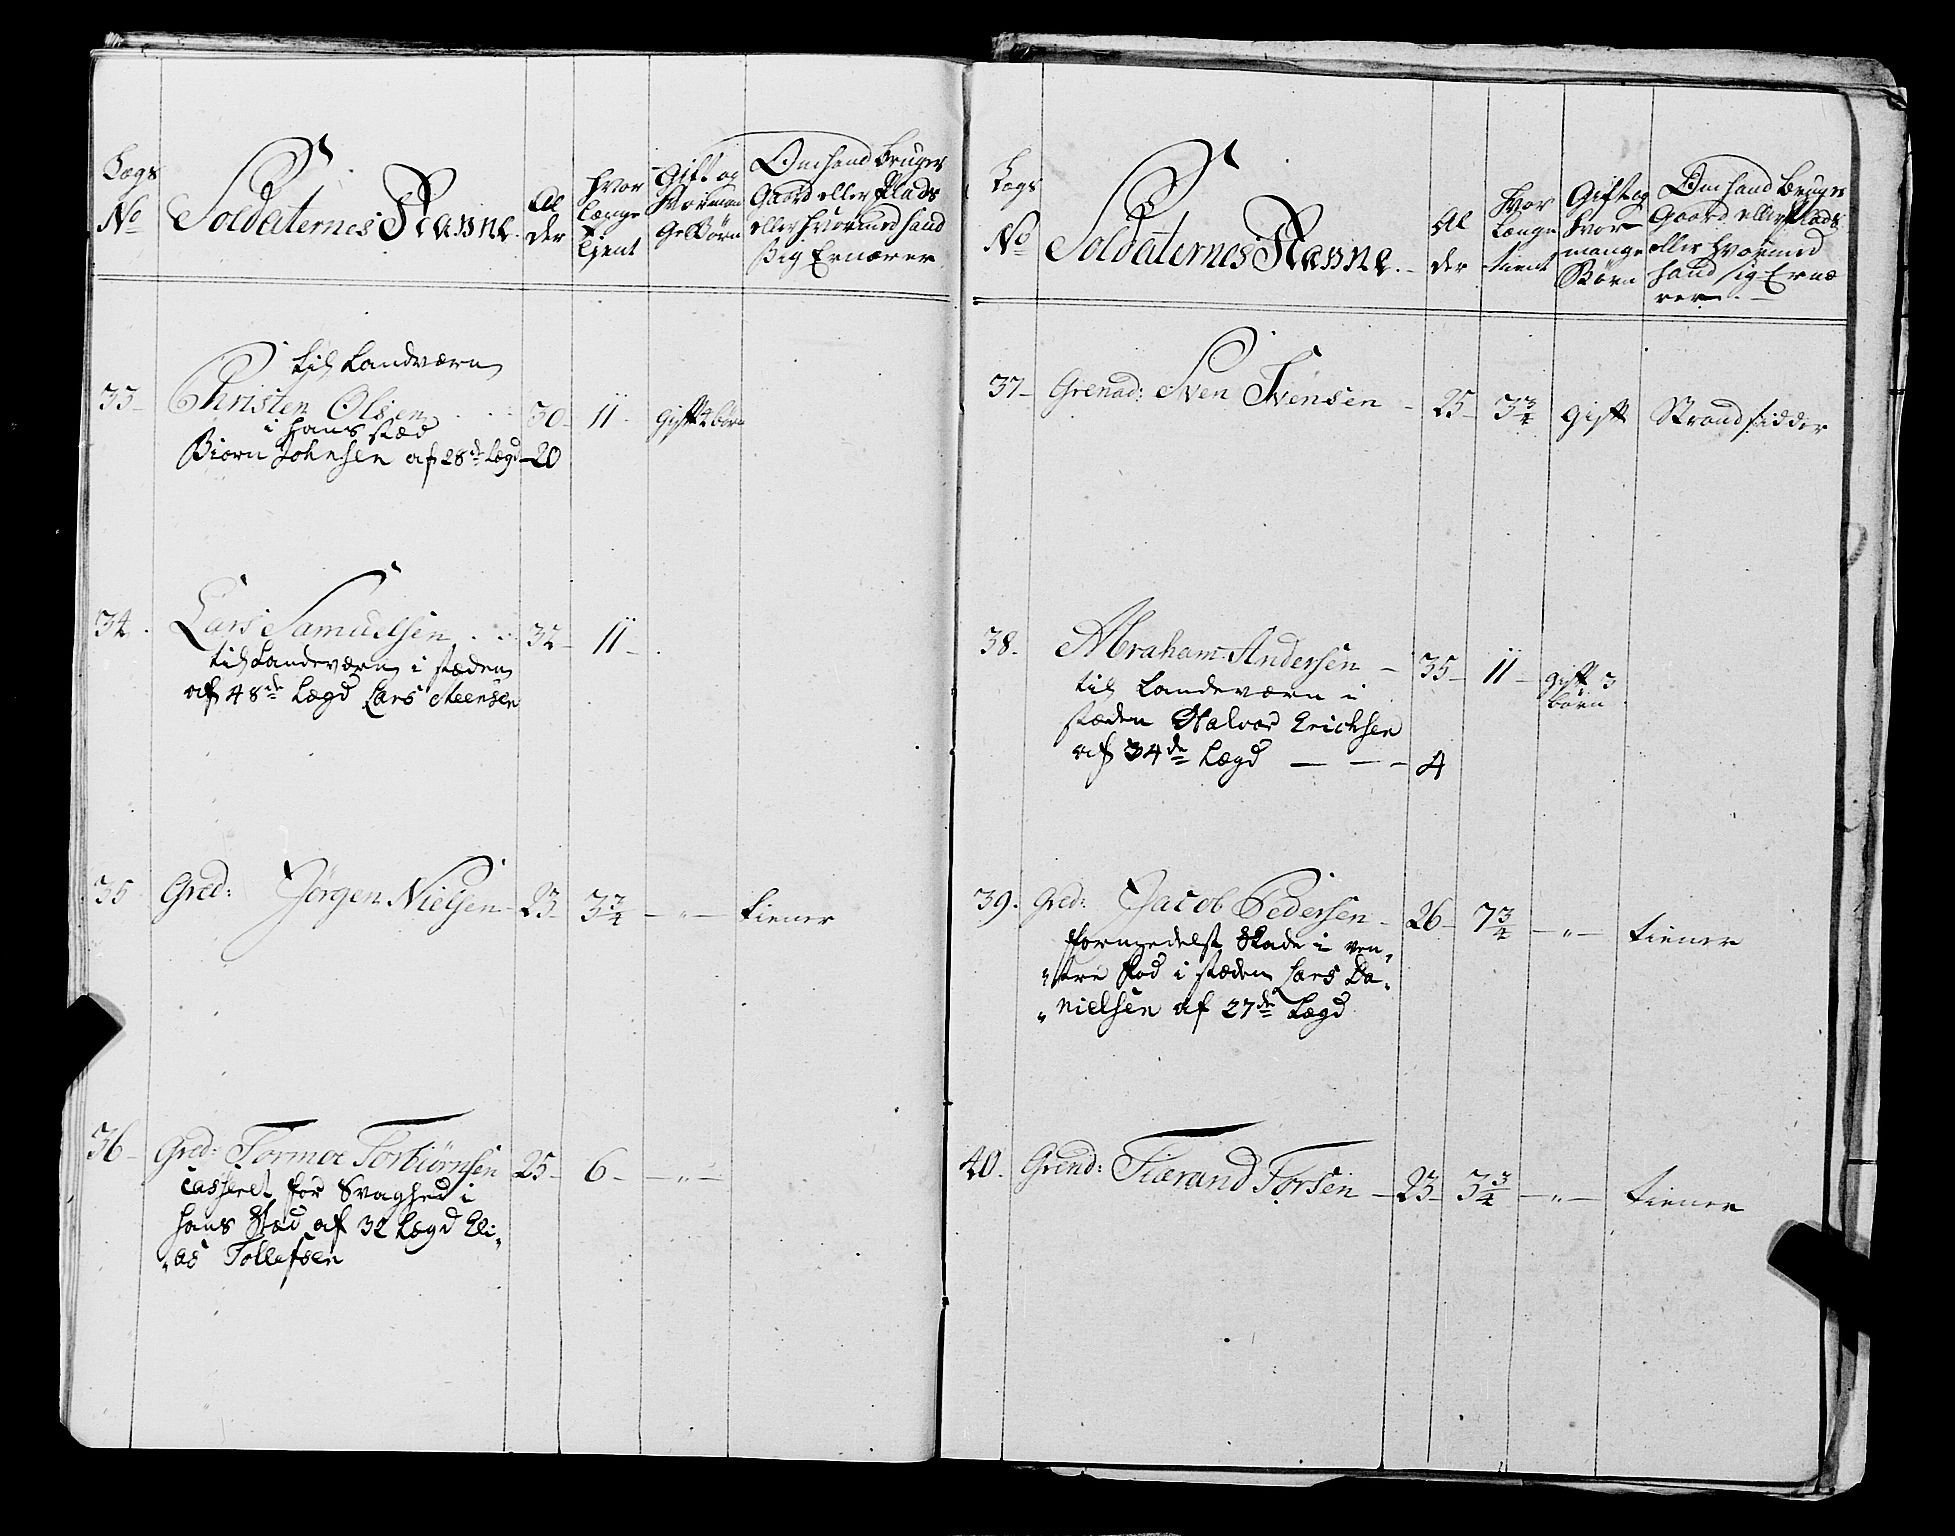 Lægs
No
Soldaternes Nafne.
Al
der
Hvor
længe
tient
Gift og
Hvorman
Ge Børn
Om hand bruger
Gaard eller Plads
eller hvormed hand
Sig Ernærer
til Landværn
33 Christen Olsen 30 11 gift 4 børn
i hans stæd
Biørn Johnsen af 28de Lægd 20
34. Lars Samuelsen 32 11
til Landeværn i stæden
af 48de Lægd Lars Steensen
35 Gred: Jørgen Nielsen 23 3 3/4 — „ — tiener
36 Gred: Tormoe Torbiørnsen 25 6 — „ —
Casseret for Svaghed i
hans Stæd af 32 Lægd Eli„
„as Tollefsen
Lægs
No
Soldaternes Nafne.
Al
der
Hvor
Længe
tient
Gift og
hvor
mange
Børn
Om hand bruger
Gaard eller Plads
eller hvormed
hand sig Ernæ
rer
37 Grenad: Sven Svensen 25 3 3/4 gift Strandsidder
38. Abraham Andersen 35 11 gift 3
børn
til Landeværn i
stæden Halvor Erichsen
af 34de Lægd — — — 4
39. Gred: Jacob Pedersen 26 7 3/4 — „ — tiener
formedelst Skade i ven„
„stre Fod i stæden Lars Da„
„nielsen af 27de Lægd
40. Grend: Tiærand Torsen 23 3 3/4 — „ — tiener